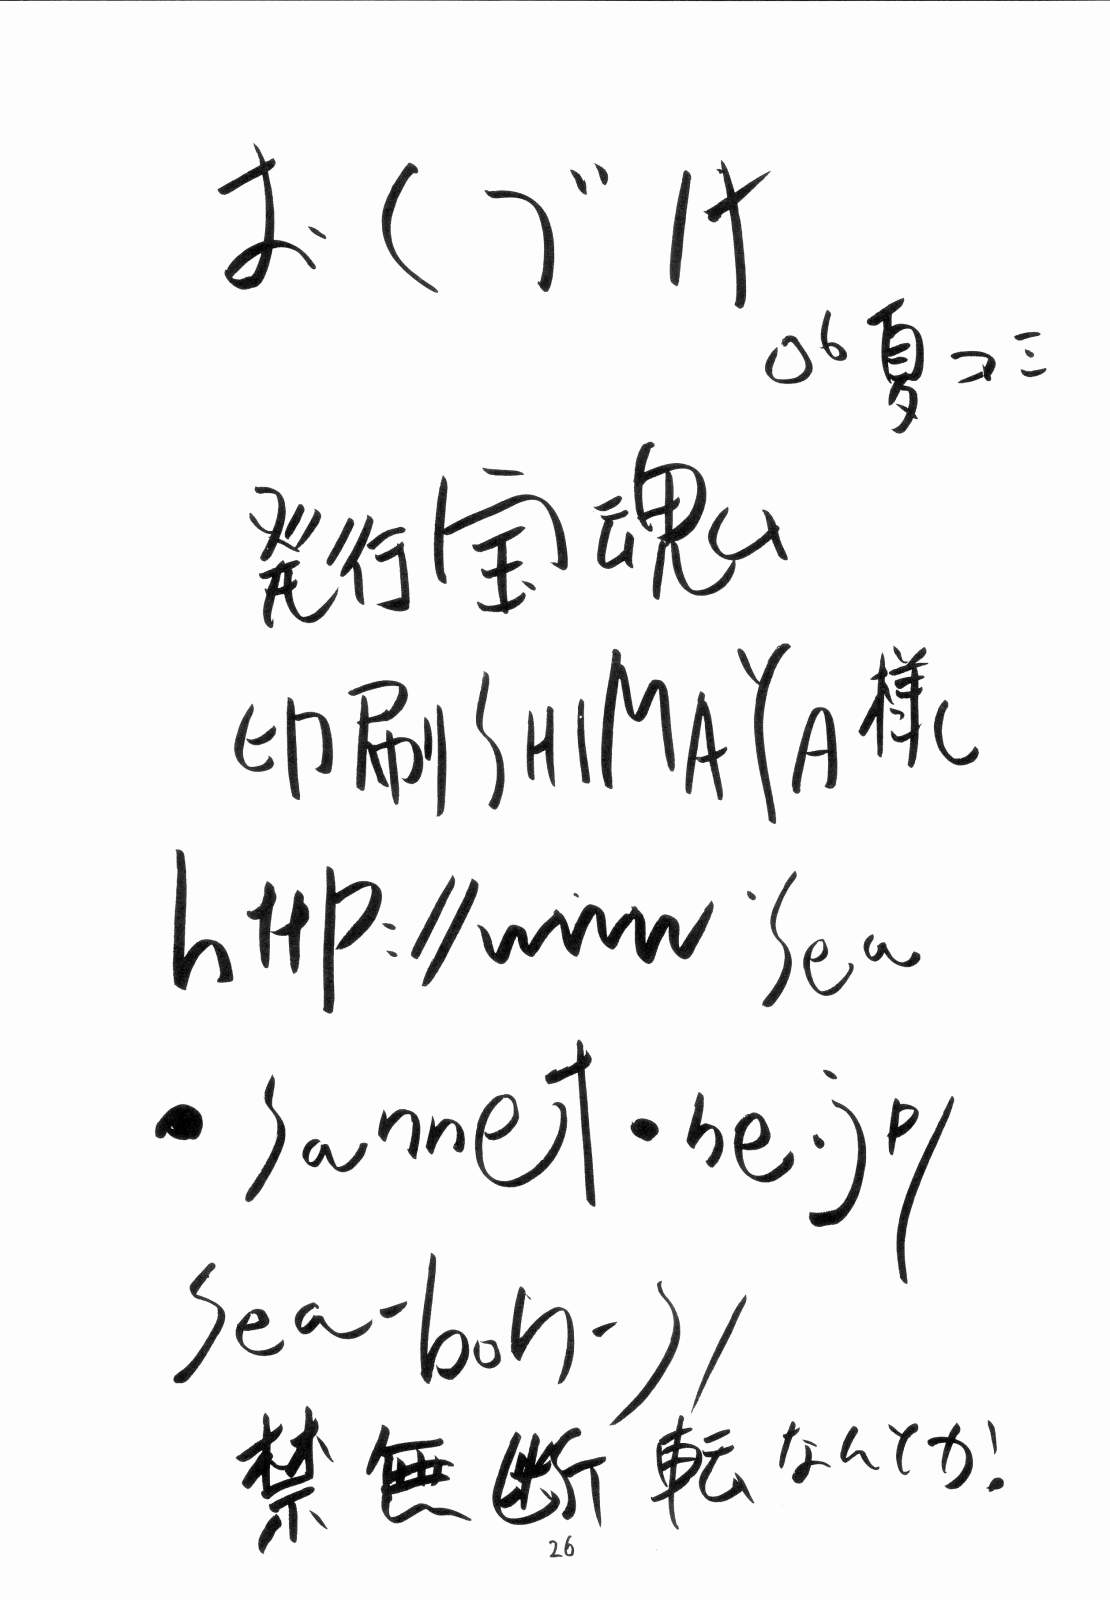 おくづけ
06夏コミ
発行宝魂し
印刷SHIMAYA様し
http://www.sea
・sannet・ne.jp/
sea-bon-s/
禁無断転なんとか!
26